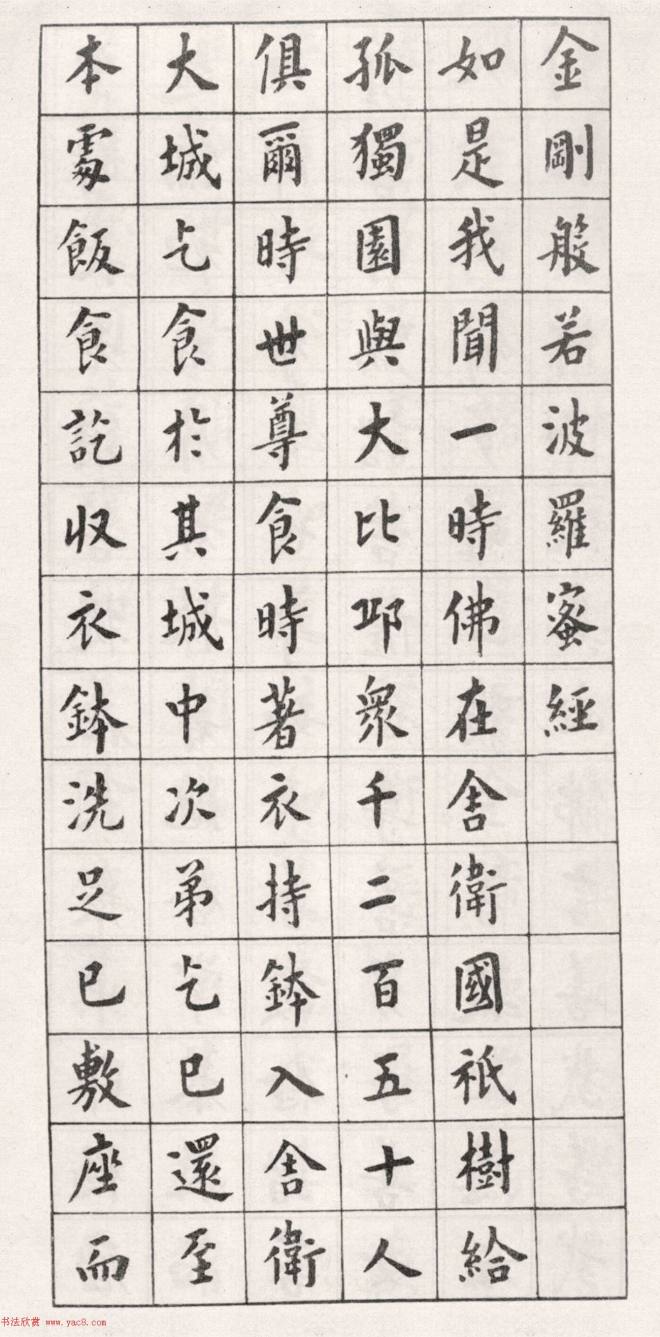 金剛般若波羅蜜經
如是我聞一時佛在舍衛國祇樹給
孤獨園與大比邱衆千二百五十人
俱爾時世尊食時著衣持鉢入舍衛
大城乞食於其城中次弟乞已還至
本處飯食訖收衣鉢洗足已敷座而
书法欣赏 www.yac8.com